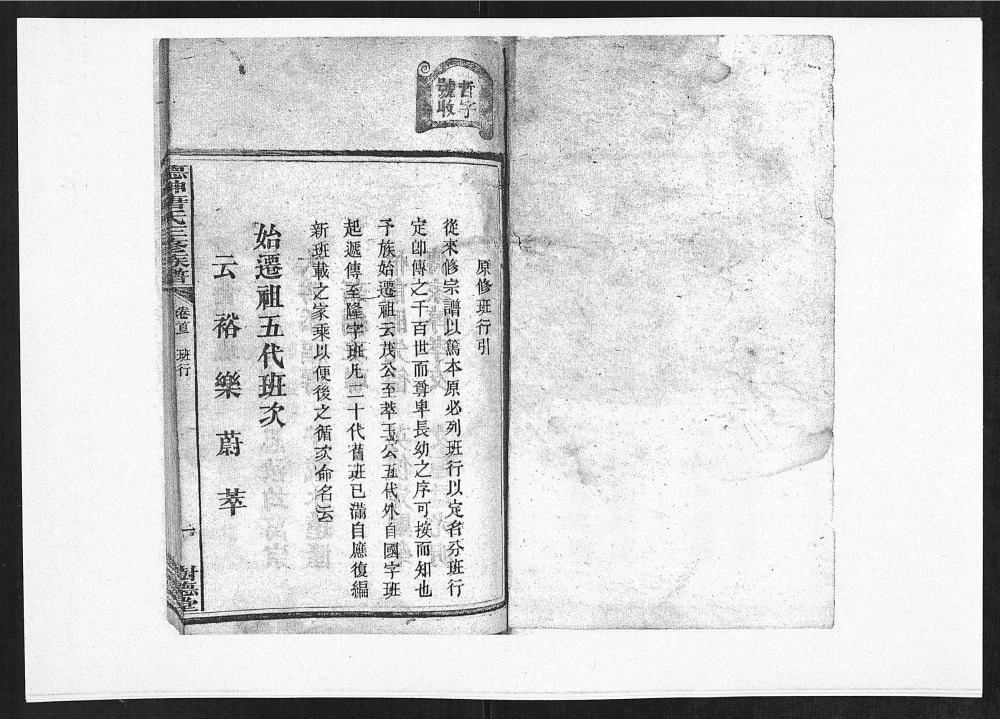 哲字
號收
原修班行引
從來修宗譜以篤本原必列班行以定名分班行
定卽傳之千百世而尊卑長幼之序可按而知也
予族始遷祖云茂公至萃玉公五代外自國字班
起遞傳至隆字班凡二十代舊班已滿自應復編
新班載之家乘以便後之循次命名云
始遷祖五代班次
云裕樂蔚萃
氏三修族譜
卷首
班行
一
樹德堂